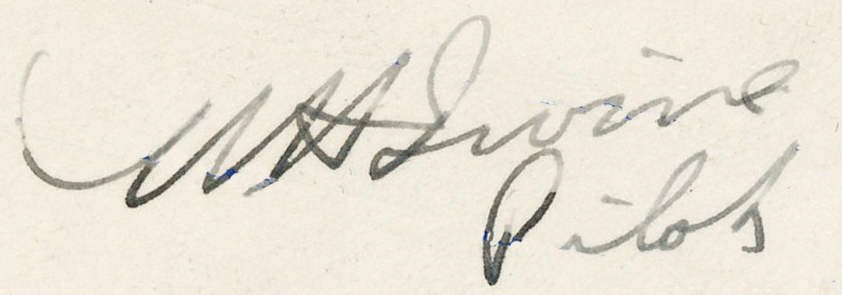 W H Irvine
Pilot